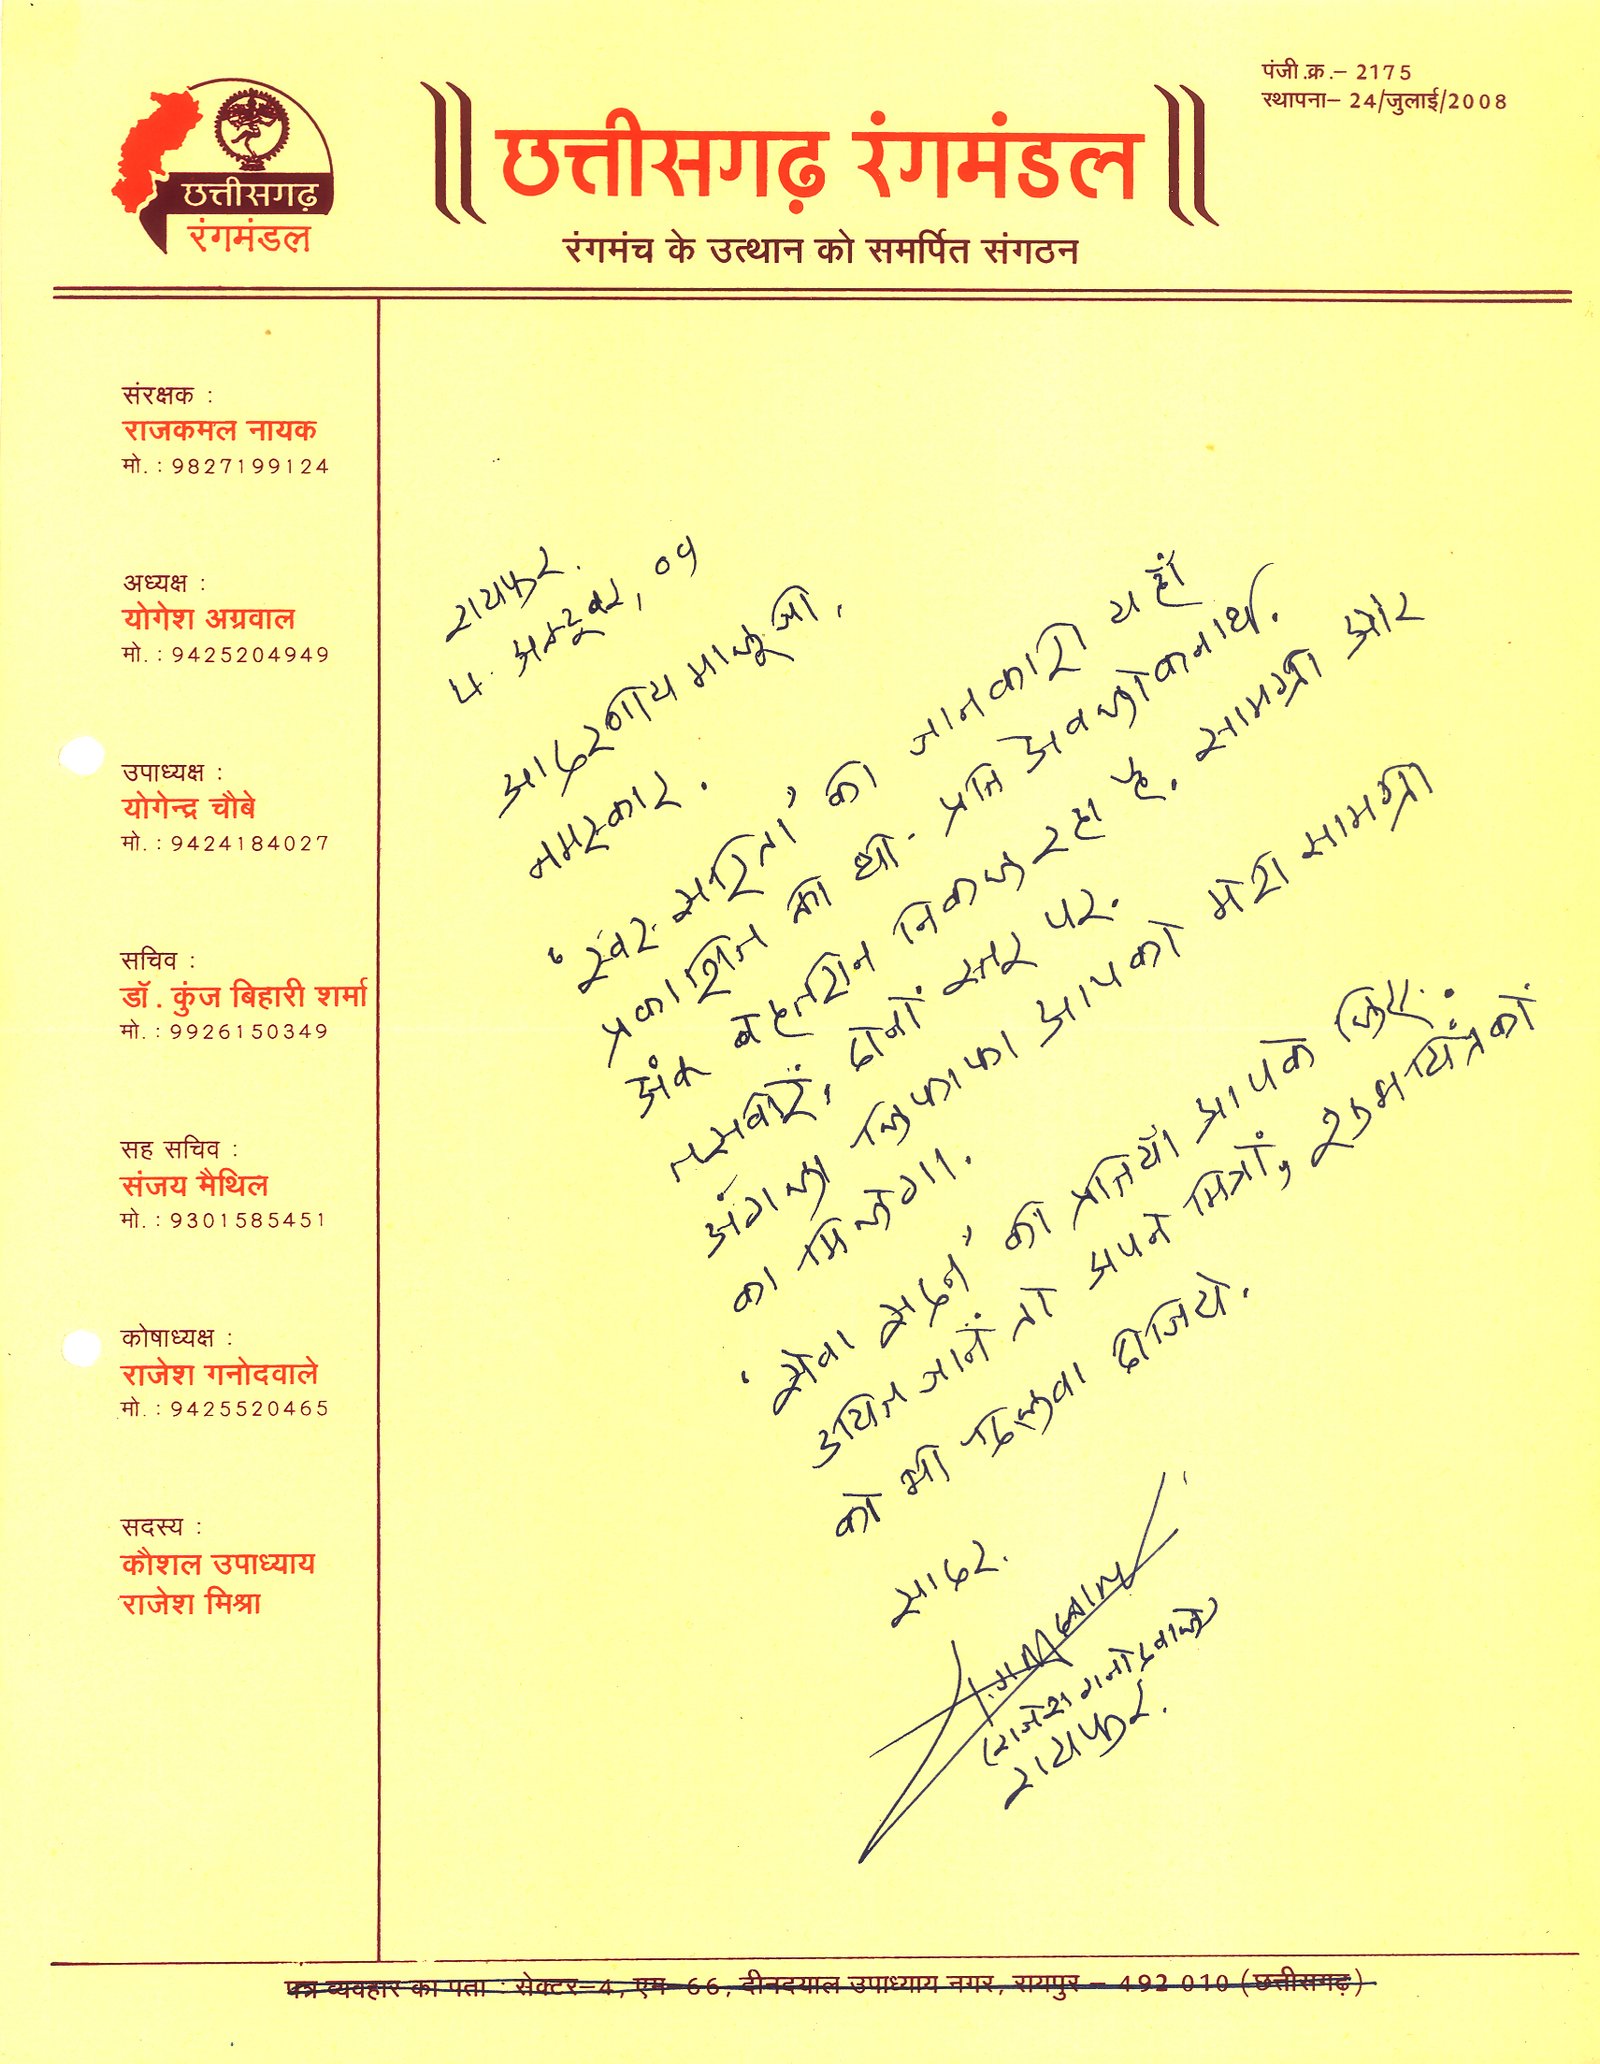 पंजी.क्र.- 2175
स्थापना- 24/जुलाई/2008
छत्तीसगढ़
रंगमंडल
|| छत्तीसगढ़ रंगमंडल ||
रंगमंच के उत्थान को समर्पित संगठन
संरक्षक :
राजकमल नायक
मो. : 9827199124
अध्यक्ष :
योगेश अग्रवाल
मो. : 9425204949
उपाध्यक्ष :
योगेन्द्र चौबे
मो. : 9424184027
सचिव :
डॉ. कुंज बिहारी शर्मा
मो. : 9926150349
सह सचिव :
संजय मैथिल
मो. : 9301585451
कोषाध्यक्ष :
राजेश गनोदवाले
मो. : 9425520465
सदस्य :
कौशल उपाध्याय
राजेश मिश्रा
रायपुर.
अक्टूबर, 09
आदरणीय मालूजी,
नमस्कार.
'स्वर सरिता' की जानकारी यहाँ
प्रकाशित की थी. प्रति अवलोकनार्थ.
अंक बेहतरीन निकल रहा है. सामग्री और
तस्वीरें, दोनों स्तर पर.
अगला लिफाफा आपको मेरी सामग्री
का मिलेगा.
'सेवा सदन' की प्रतियाँ आपके लिए.
उचित जानें तो अपने मित्रों, रंगमंच
को भी दिलवा दीजिये.
सादर.
(राजेश गनोदवाले)
रायपुर.
पत्र व्यवहार का पता : सेक्टर-4, एम-66, दीनदयाल उपाध्याय नगर, रायपुर - 492 010 (छत्तीसगढ़)